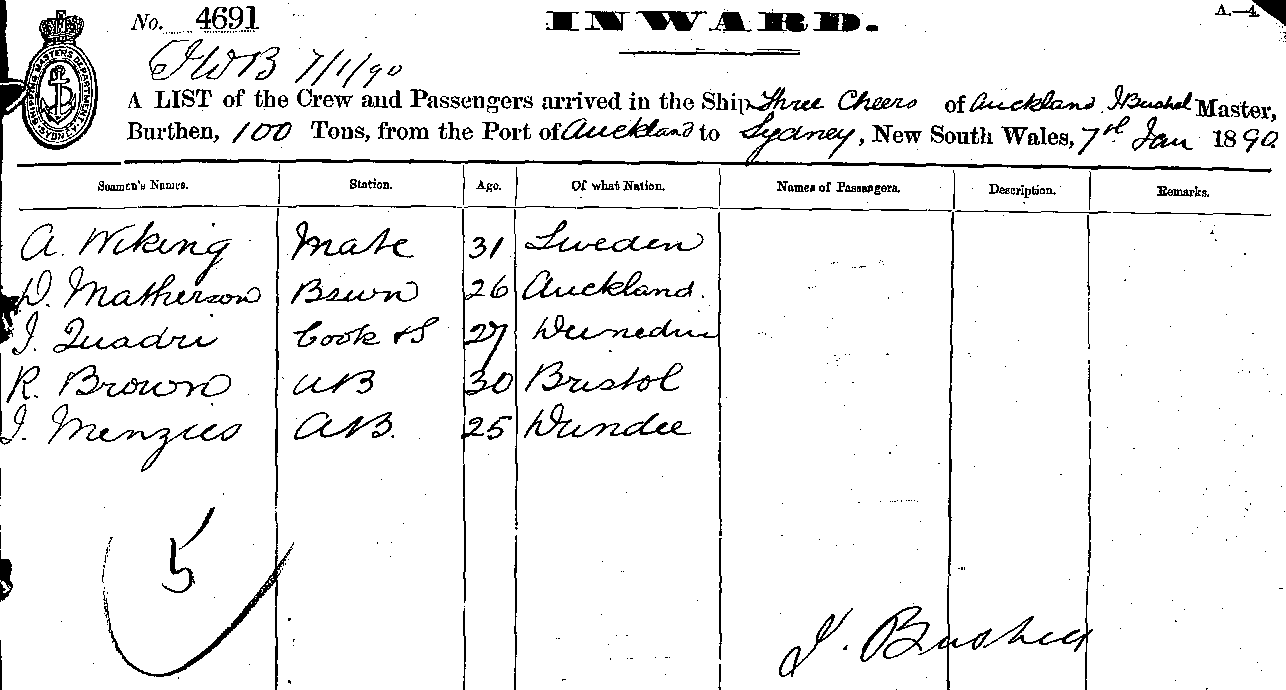 No. 4691 INWARD. A.—4.
JWB 7/1/90
A LIST of the Crew and Passengers arrived in the Ship Three Cheers of Auckland J Bushel Master,
Burthen, 100 Tons, from the Port of Auckland to Sydney, New South Wales, 7th Jan 1890
Seamen's Names. Station. Age. Of what Nation. Names of Passengers. Description. Remarks.
A. Wiking Mate 31 Sweden
D. Matherson Bswn 26 Auckland.
J. Quadri Cook & S 27 Dunedin
R. Brown AB 30 Bristol
J. Menzies AB. 25 Dundee
5
J. Bushell